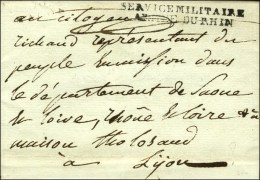 SERVICE MILITAIRE
ARMÉE DU RHIN
au citoyen
richaud representant du
peuple en mission dans
le département de Saone
et Loire, rhône et Loire &a
maison tholozand
à Lyon